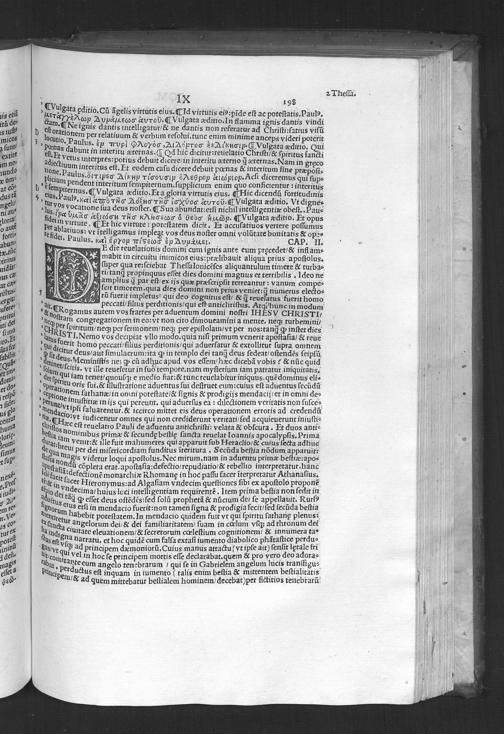 IX
198
2 Thessa.
¶ Vulgata æditio. Cũ ãgelis virtutis eius. ¶ Id virtutis eius: pide est ac potestatis. Paulꝰ.
μεταγγέλων Δυνάμεωσ αυτού. ¶ Vulgata æditio. In flamma ignis dantis vindi
ctam. ¶ Ne ignis dantis intelligatur: & ne dantis non referatur ad Christi: satius visũ
est orationem per relatiuum & verbum resolui. tunc enim minime anceps videri poterit
locutio. Paulus. ἐν πυρὶ φλογὸσ Διδόντοσ ἐκδίκησιν. ¶ Vulgata æditio. Qui
pœnas dabunt in interitu æternas. ¶ Qd hic dicitur: reuelatio Christi: & spiritus sancti
est. Et vetus interpres: potius debuit dicere: in interitu æterno
adiectiuum interitus est. Et eodem casu dicere debuit pœnas & interitum sine præposi-
tione. Paulus.
plicium pendent interitum sempiternum. supplicium enim quo conficientur: interitus
est sempiternus. ¶ Vulgata æditio. Et a gloria virtutis eius. ¶ Hic dicendũ fortitudinis
eius. Paulꝰ. καὶ ἀπὸ τῆσ Δόξησ τῆσ ἰσχύοσ αυτού. ¶ Vulgata æditio. Vt digne-
tur vos vocatione sua deus noster. ¶ Sua abundat: etsi nihil intelligentiæ obest. Pau-
lus. ἵνα υμᾶσ ἀξιώση τῆσ κλήσεωσ ὁ θεὸσ ημῶν. ¶ Vulgata æditio. Et opus
fidei in virtute. ¶ Et hic virtute: potestatem dicit. Et accusatiuos vertere possumus
per ablatiuos: vt intelligamus impleat vos deus noster omni volũtate bonitatis & ope-
re fidei. Paulus. καὶ ἔργον πίστεωσ ἐν Δυνάμει. CAP. II.
DE die reuelationis domini cum ignis ante eum præcedet: & inflam-
mabit in circuitu inimicos eius: prælibauit aliqua prius apostolus.
super qua rescribebat Thessalonicẽses aliquantulum timere & turba-
ri: tanq̃ propinquus esset dies domini magnus et terribilis. Ideo ne
amplius q̃ par est ex iis quæ præscripsit terreantur: vanum compe-
scit timorem. quia dies domini non prius veniet: q̃ numerus electo-
rũ fuerit impletus: quẽ deo cognitus est: & q̃ reuelatus fuerit homo
peccati filius perditionis: qui est antichristus. Atqꝫ hunc in modum
ait. ¶ Rogamus autem vos fratres per aduentum domini nostri IHESV CHRISTI/
& nostram congregationem in eo: vt non cito dimoueamini a mente. neqꝫ turbemini/
neqꝫ per spiritum: neqꝫ per sermonem: neqꝫ per epistolam: vt per nos: tanq̃ instet dies
CHRISTI. Nemo vos decipiat vllo modo. quia nisi primum venerit apostasia: & reue
latus fuerit homo peccati filius perditionis: qui aduersatur & extollitur supra omnem
qui dicitur deus: aut simulacrum: ita q̃ in templo dei tanq̃ deus sedeat: ostendẽs seipsũ
q̃ sit deus. Meministis ne: q̃ cũ adhuc apud vos essem: hæc dicebã vobis: & nũc quid
detineat scitis. vt ille reueletur in suo tempore. nam mysterium iam patratur iniquitatis.
solum qui iam tenet: quousqꝫ e medio fiat: & tunc reuelabitur iniquus. quẽ dominus eli-
det spiritu oris sui. & illustratione aduentus sui destruet eum: cuius est aduentus secũdũ
operationem sathanæ: in omni potestate: & signis & prodigiis mendacii: et in omni de-
ceptione iniustitiæ in iis qui pereunt. qui aduersus ea: dilectionem veritatis non susce-
perunt: vt ipsi saluarentur. & iccirco mittet eis deus operationem erroris ad credendũ
mendacio: vt iudicentur omnes qui non crediderunt veritati: sed acquieuerunt iniusti-
tiæ. ¶ Hæc est reuelatio Pauli de aduentu antichristi: velata & obscura. Et duos anti-
christos nominibus primæ & secundæ bestiæ sancta reuelat Ioannis apocalypsis. Prima
bestia iam venit: & ille fuit mahumetes qui apparuit sub Heraclio: & cuius secta adhuc
durat: breui per dei misericordiam funditus interitura. Secũda bestia nõdum apparuit:
de qua magis videtur loqui apostolus. Nec mirum. nam in aduentu primæ bestiæ: apo-
stasia nondũ cõpleta erat. apostasia: defectio: repudiatio & rebellio interpretatur. hanc
apostasiã: defectionẽ monarchiæ Rhomanę in hoc passu facere iterpretatur Athanasius.
id est dicit facere Hieronymus: ad Algasiam vndecim questiones sibi ex apostolo proponẽ
te: & in vndecima: huius loci intelligentiam requirentẽ. Item prima bestia non sedit in
templo dei tanq̃ esset deus ostẽdẽs: sed solũ prophetã & nũcium dei se appellauit. Rursꝰ
aduentus eius etsi in mendacio fuerit: non tamen signa & prodigia fecit: sed secũda bestia
signorum habebit potestatem. In mendacio quidem fuit vt qui spiritu sathanę plenus:
mentiretur angelorum dei: & dei familiaritatem: suam in cœlum vsqꝫ ad thronum dei
et sancta ciuitate eleuationem: & secretorum cœlestium cognitionem: & innumera ta-
lia indigna narratu. et hoc quidẽ cum falsa extasi tumens: diabolico phãtastice perdu-
ctus est vsqꝫ ad principem dæmoniorũ. Cuius manus attactu (vt ipse ait) sensit lętale fri
gus: vt qui vel in hoc se principem mortis esse declarabat. quem & pro vero deo adora-
uit: comitante eum angelo tenebrarum: qui se in Gabrielem angelum lucis transfigu-
rabat. perductus est inquam in iumento (talis enim bestia & mittentem bestialitatis
principem: & ad quem mittebatur bestialem hominem: decebat) per fictitios tenebrarũ